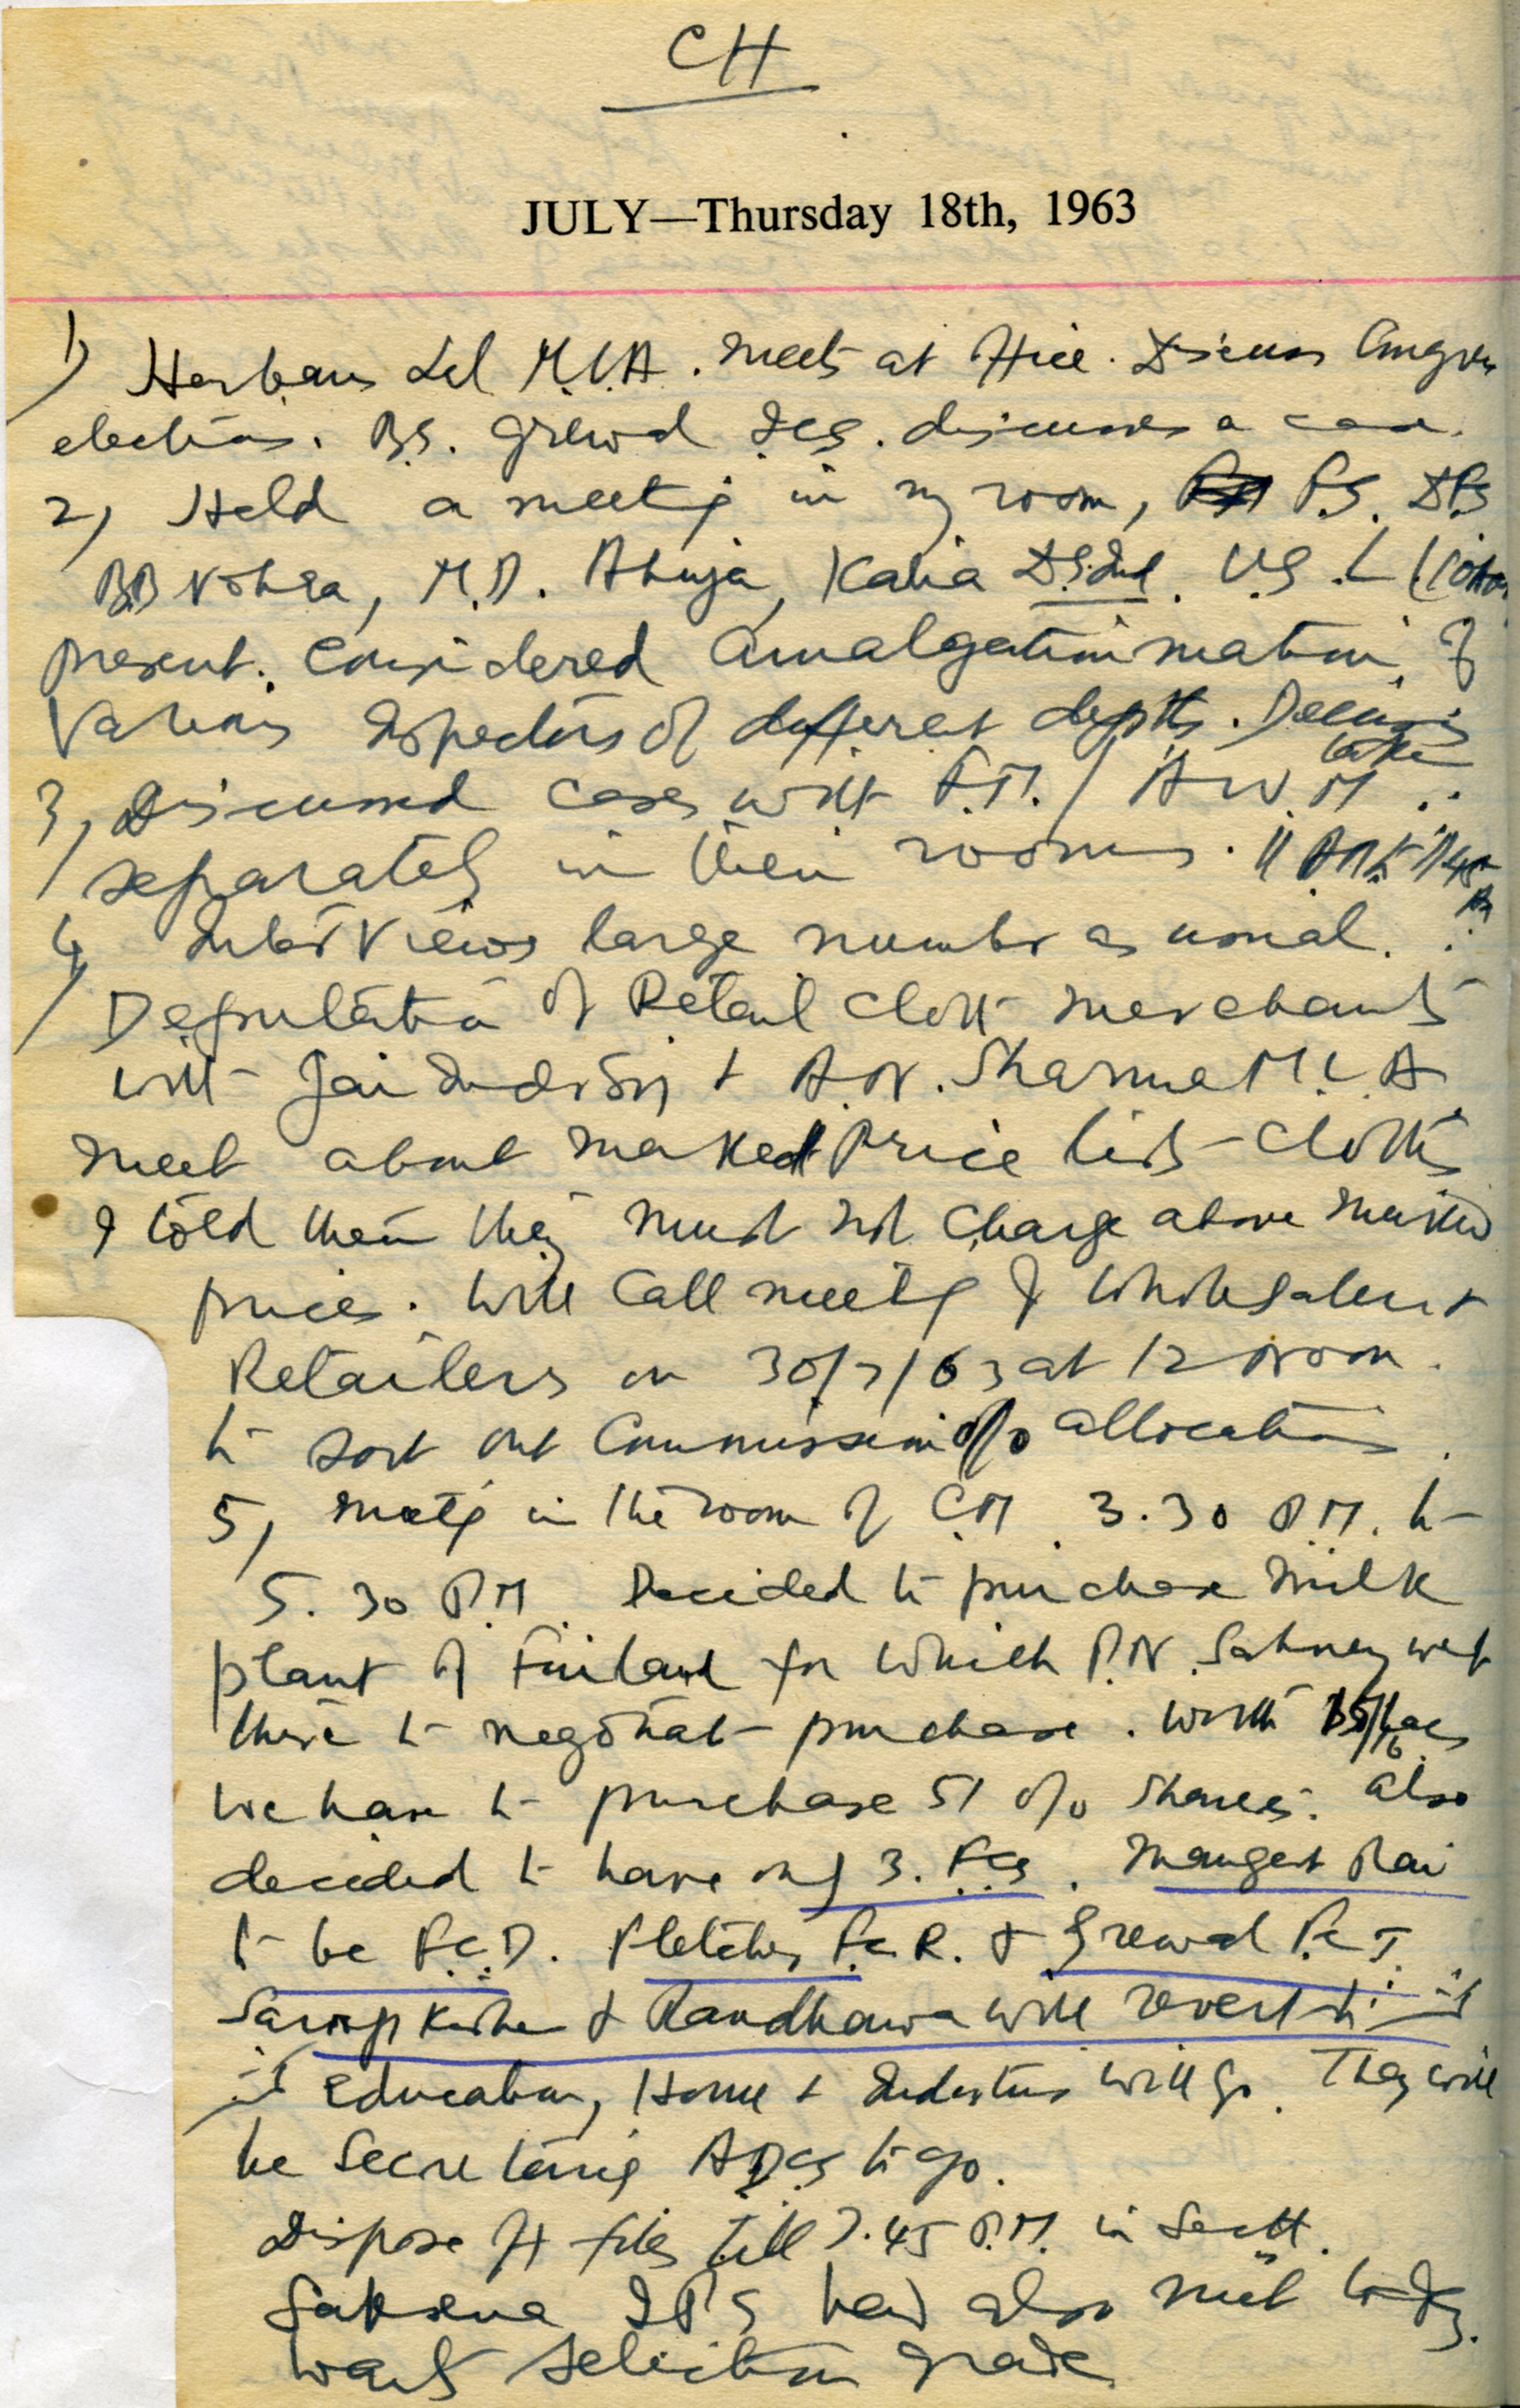 CH
JULY—Thursday 18th, 1963
1) Harbans Lal M.L.A. meets at office. Discuss Congress
elections. B.S. Grewal ICS. discusses a case.
2) Held a meeting in my room, P.S. DPS
BB Vohra, M.D. Ahuja, Kalia DS.Ind. U.S. L
present. Considered amalgatimmation of
various Inspectors of different deptts. Decisions
taken
3) Discussed cases with F.M. / A W. M
separately in their rooms. 11 AM to
4) Interviews large number as usual.
Deputation of Retail cloth merchants
with Jai Inder Singh + A.N. Sharma M.L.A
meet about marked price lists - cloths
I told them they must not charge above marked
prices. Will call meeting of wholesalers +
Retailers on 30/7/63 at 12 Noon.
to sort out Commission % allocations.
5) meeting in the room of C.M. 3.30 P.M. to
5.30 P.M. Decided to purchase milk
plant of Finland for which P.N. Sahney went
there to negotiate purchase. Worth lacs
We have to purchase 51 % shares. also
decided to have only 3. FCs. Mangat Rai
to be F.C.D. Fletcher F.C.R. + Grewal F.C.T.
Sarup Krishen + Randhawa will revert to
Education, Home + Industries will go. They will
be Secretaries ADCs to go.
Dispose of files till 7.45 P.M. in Sectt.
Saksena IPS had also met today.
wants selection grade